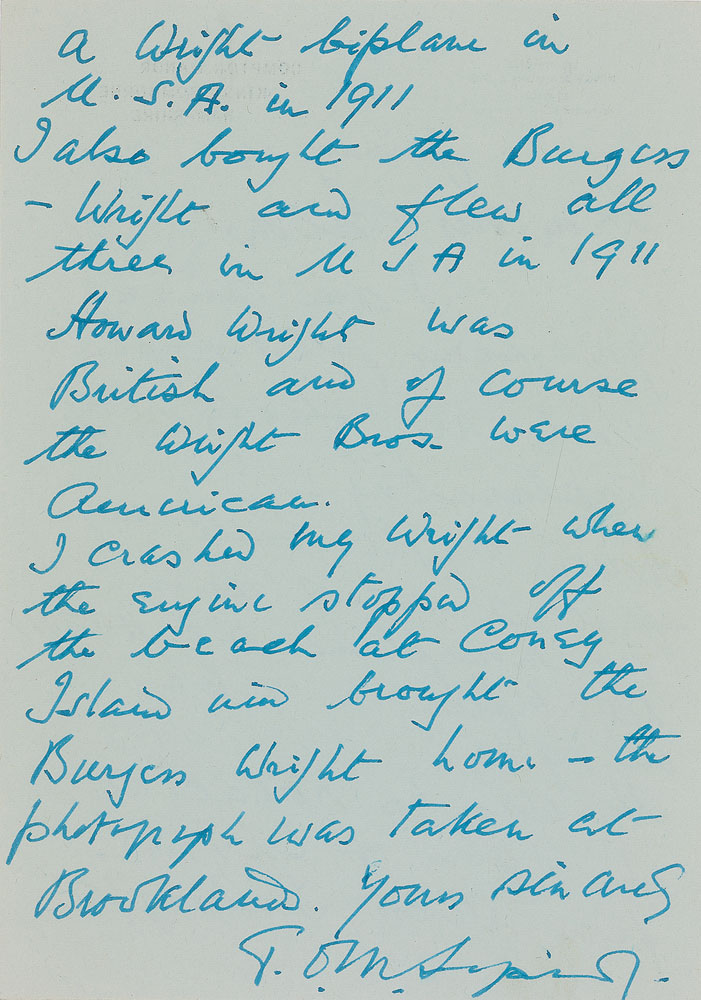 a Wright biplane in
U.S.A. in 1911
I also bought the Burgess
- Wright and flew all
three in U S A in 1911
Howard Wright was
British and of course
the Wright Bros. were
American.
I crashed my Wright when
the engine stopped off
the beach at Coney
Island and brought the
Burgess Wright home - the
photograph was taken at
Brookland. Yours sincerely
T.O.M. Sopwith.